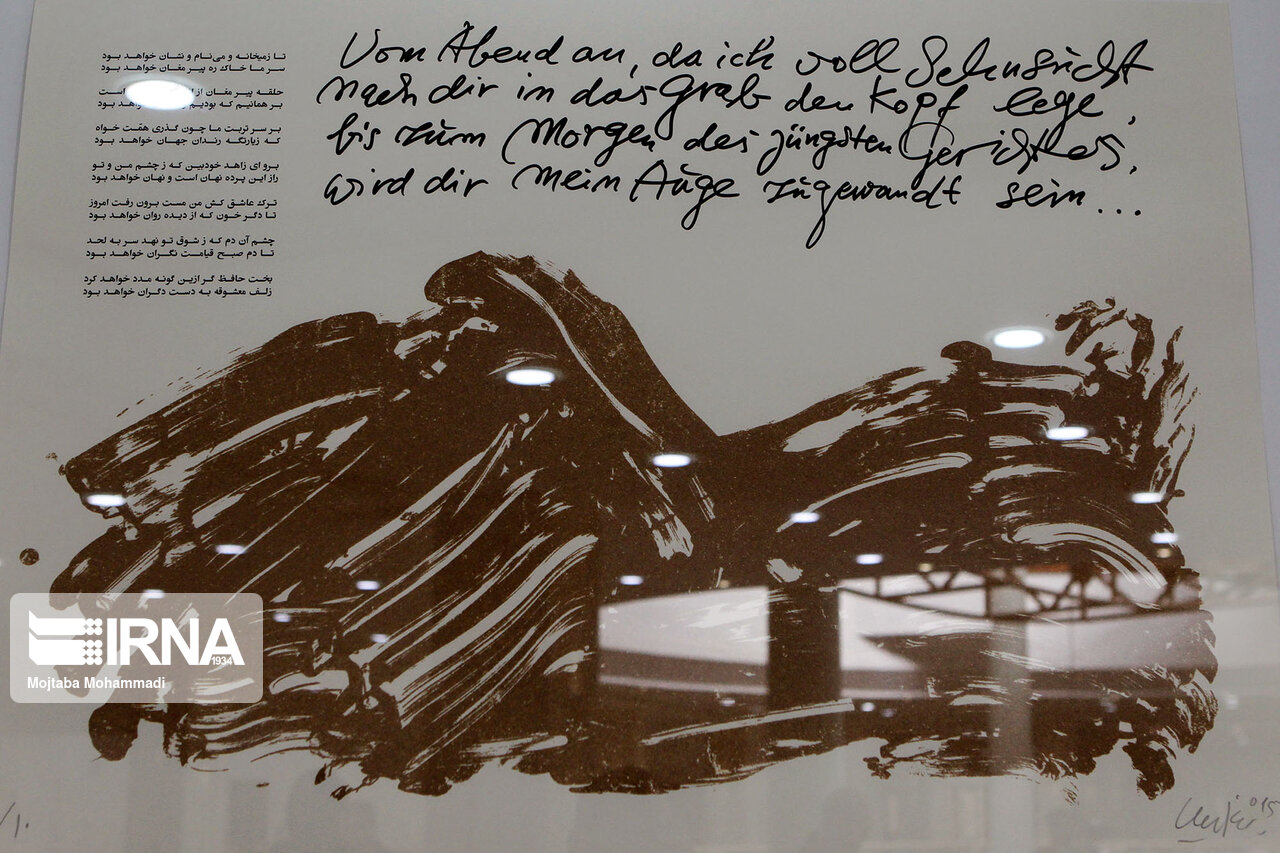 تا زمیخانه و می‌نام و نشان خواهد بود
سر ما خاک ره پیر مغان خواهد بود
حلقه پیر مغان از است
بر همانیم که بودیم خواهد بود
بر سر تربت ما چون گذری همّت خواه
که زیارتگه رندان جهان خواهد بود
برو ای زاهد خودبین که ز چشم من و تو
راز این پرده نهان است و نهان خواهد بود
ترک عاشق کش من مست برون رفت امروز
تا دگر خون که از دیده روان خواهد بود
چشم آن دم که ز شوق تو نهد سر به لحد
تا دم صبح قیامت نگران خواهد بود
بخت حافظ گر ازین گونه مدد خواهد کرد
زلف معشوقه به دست دگران خواهد بود
Vom Abend an, da ich voll Sehnsucht
nach dir in das Grab den Kopf lege,
bis zum Morgen des jüngsten Gerichtes,
wird dir mein Auge zugewandt sein...
IRNA
1934
Mojtaba Mohammadi
/10
015